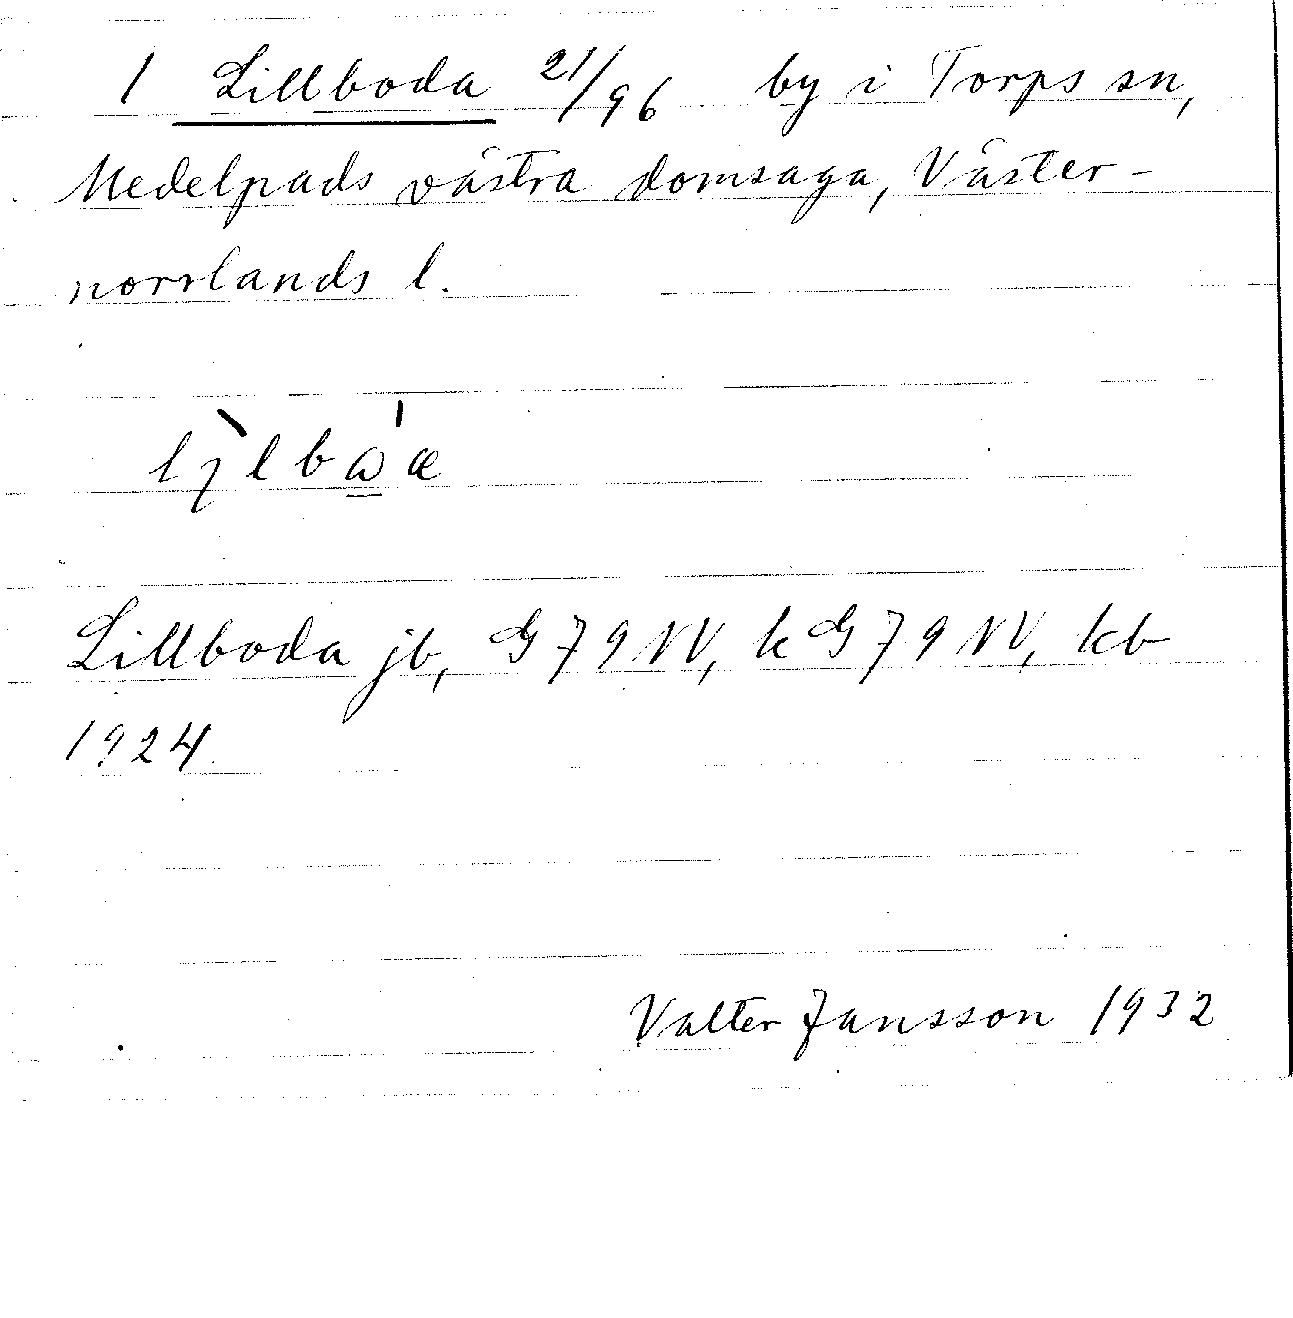 1 Lillboda 21/96 by i Torps sn,
Medelpads västra domsaga, Väster-
norrlands l.
Lillboda jb, G 79 NV, kG 79 NV, kb
1924
Valter Jansson 1932